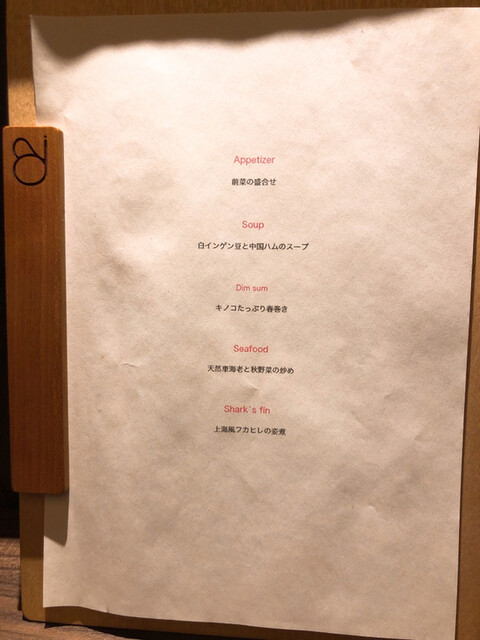 Appetizer
前菜の盛合せ
Soup
白インゲン豆と中国ハムのスープ
Dim sum
キノコたっぷり春巻き
Seafood
天然車海老と秋野菜の炒め
Shark's fin
上海風フカヒレの姿煮